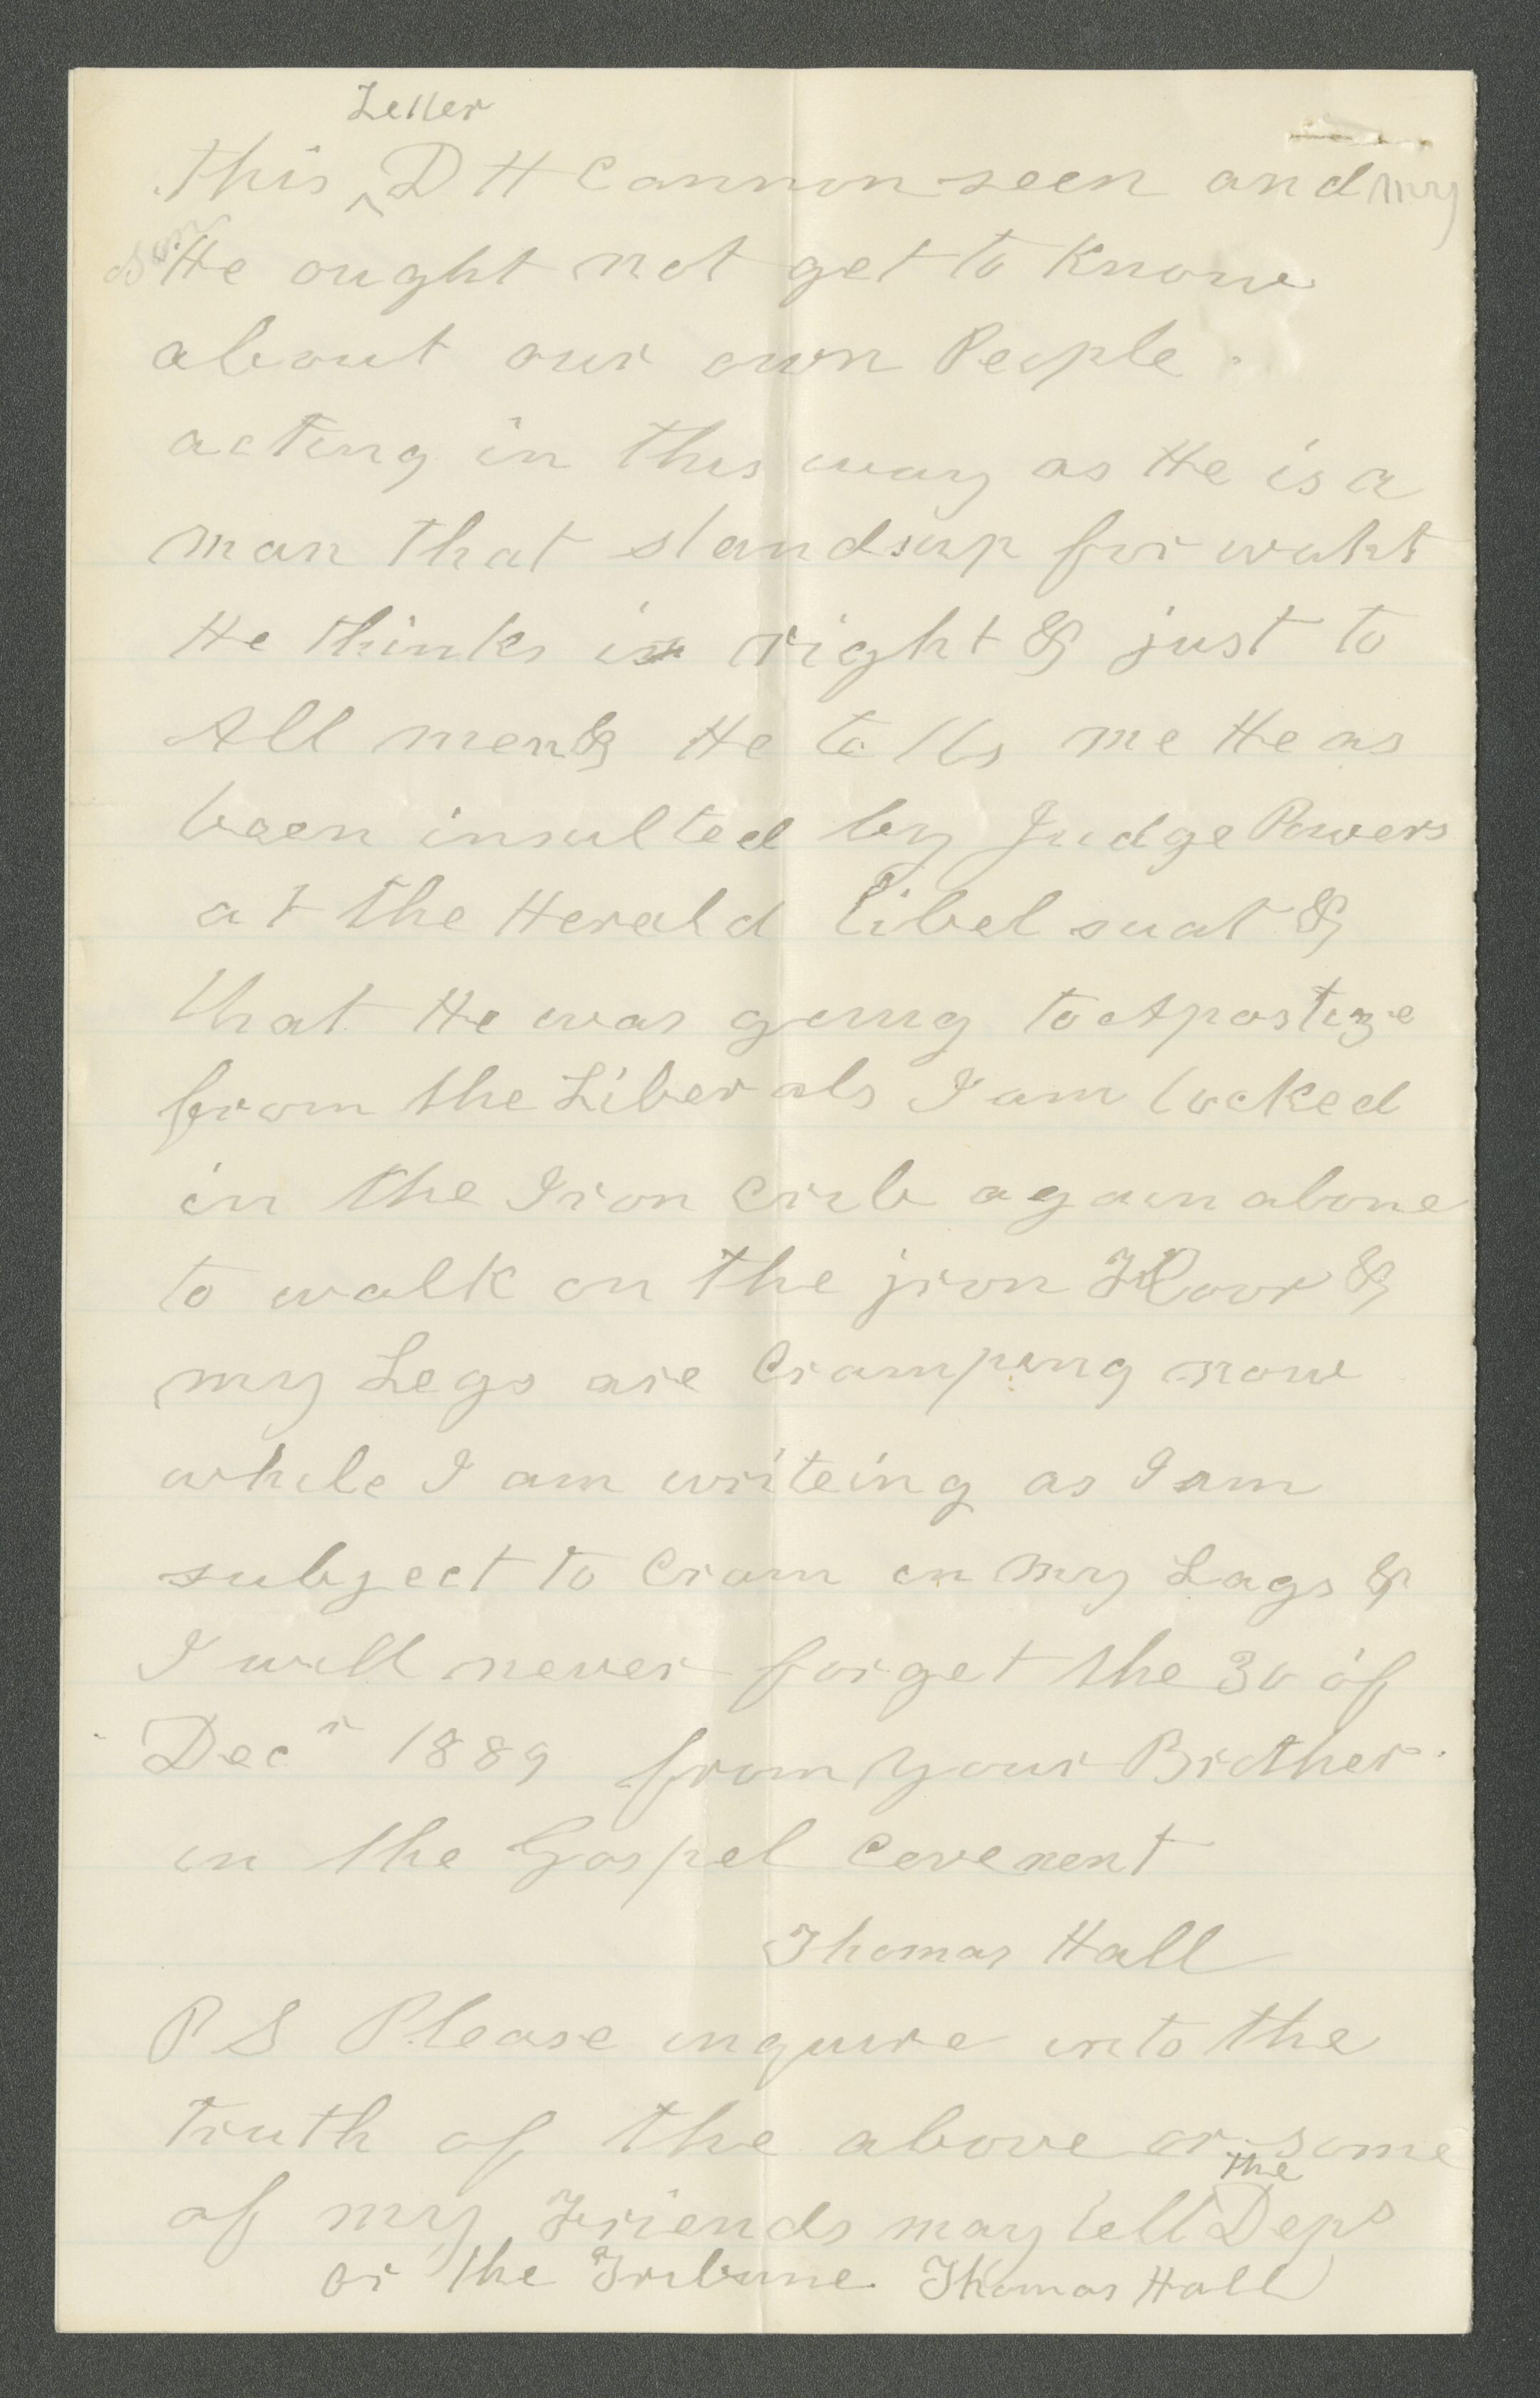 Letter
This ^ D H Cannon seen and my
son He ought not get to Know
about our own People.
acting in this way as He is a
man that standsup for waht
He thinks is right & just to
All men & He tells me He as
been insulted by Judge Powers
at the Herald libel suat &
that He was going to Apostize
from the Liberals I am locked
in the Iron Crib again alone
to walk on the jron Floor &
my Legs are Cramping now
while I am writeing as I am
subject to Cram in my Lags &
I will never forget the 30 of
Decr 1889 from your Brother
in the Gospel Covenent
Thomas Hall
P S Please inquire into the
truth of the above or some
the
of my Friends may tell Deps
or the Tribune Thomas Hall